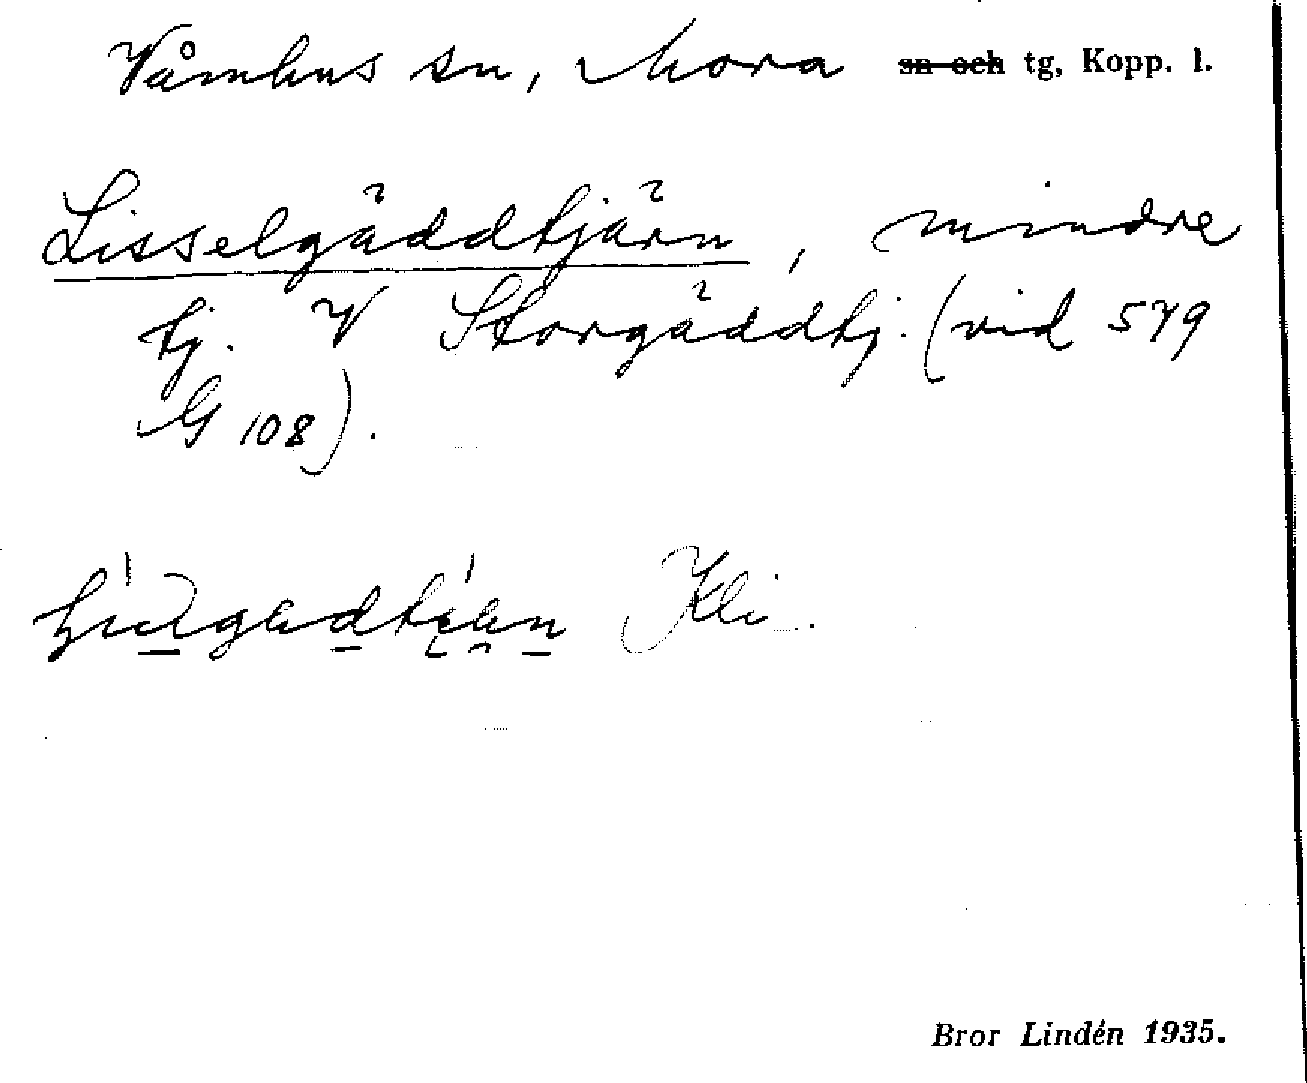 Våmhus sn, Mora sn och tg, Kopp. l.
Lisselgäddtjärn, mindre
tj. V Storgäddtj. (vid 579
G 108).
Kli.
Bror Lindén 1935.